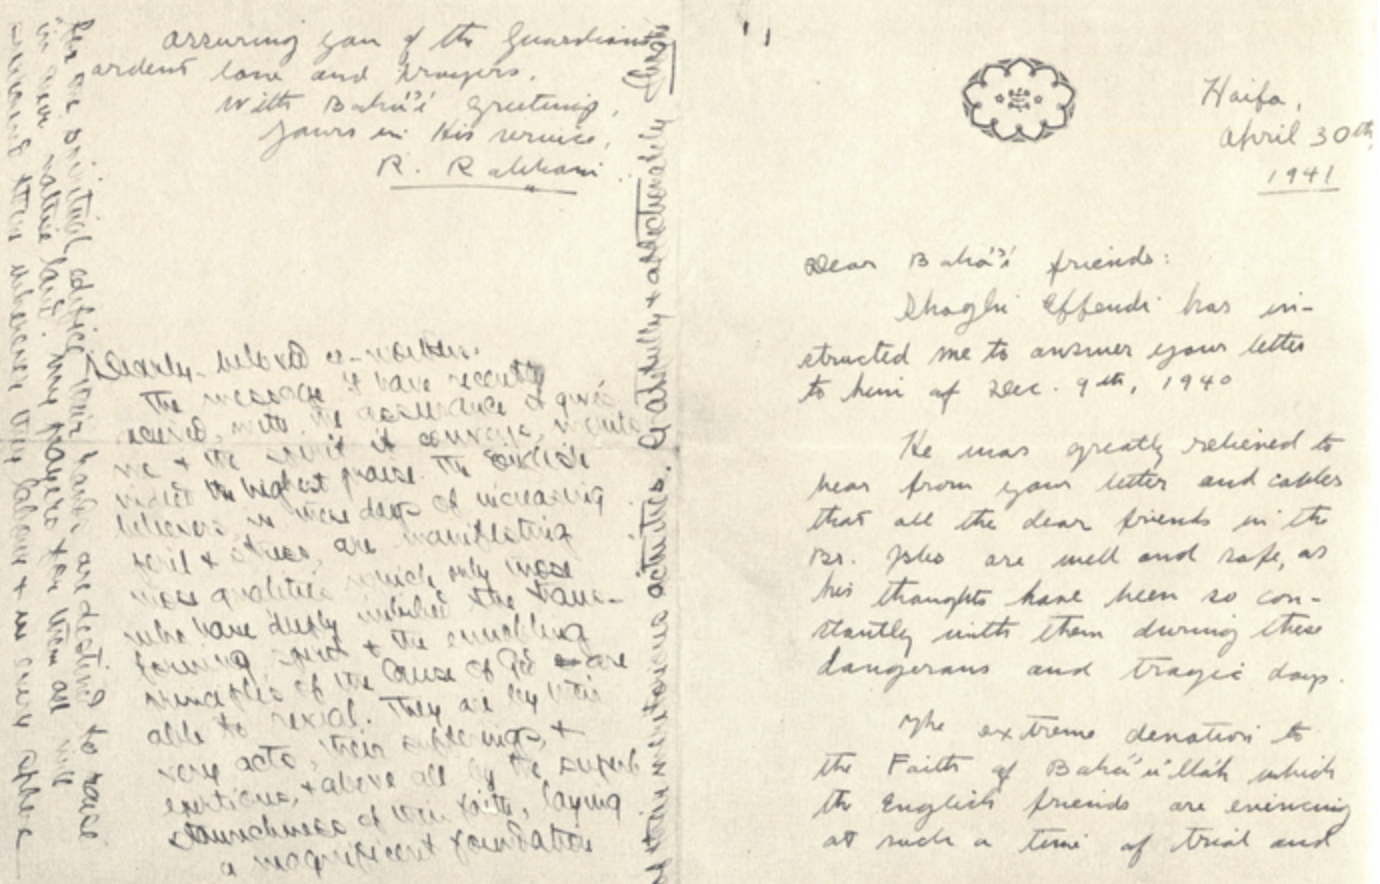 Haifa,
April 30th,
1941
Dear Bahá'í friends:
Shoghi Effendi has in-
structed me to answer your letter
to him of Dec. 9th, 1940
He was greatly relieved to
hear from your letter and cables
that all the dear friends in the
Br. Isles are well and safe, as
his thoughts have been so con-
stantly with them during these
dangerous and tragic days.
The extreme devotion to
the Faith of Bahá'u'lláh which
the English friends are evincing
at such a time of trial and
assuring you of the Guardian's
ardent love and prayers.
With Bahá'í greeting,
Yours in His service,
R. Rabbani
Dearly-beloved co-workers:
The message I have recently
received, with the assurance it gives
me & the spirit it conveys, merits
indeed the highest praise. The English
believers, in these days of increasing
peril & stress, are manifesting
those qualities which only those
who have deeply imbibed the trans-
forming spirit & the ennobling
principles of the Cause of God are
able to reveal. They are by their
very acts, their sufferings, &
exertions, & above all by the superb
staunchness of their faith, laying
a magnificent foundation
for the spiritual edifice their hands are destined to raise
in their native land. My prayers for them all will
surround them wherever they labour & in every sphere
of their meritorious activities. Gratefully & affectionately Shoghi